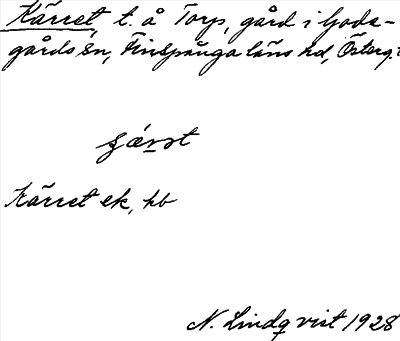 Kärret, t. å Torp, gård i Gode-
gårds sn, Finspånga läns hd, Österg.
Kärret ek, hb
N. Lindqvist 1928